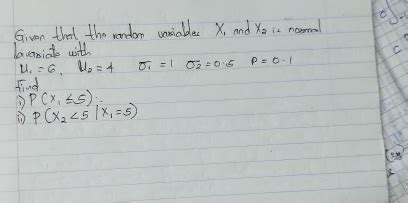 Given that the random variables X₁ and X₂ is normal
bivariate with
μ₁ = 6, μ₂ = 4 σ₁ = 1 σ₂ = 0.5 P = 0.1
Find
i) P(X₁ ≤ 5)
ii) P(X₂ < 5 | X₁ = 5)